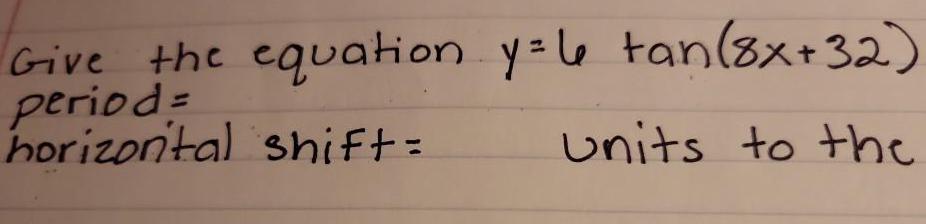 Give the equation y=6 tan(8x+32)
period=
horizontal shift= units to the